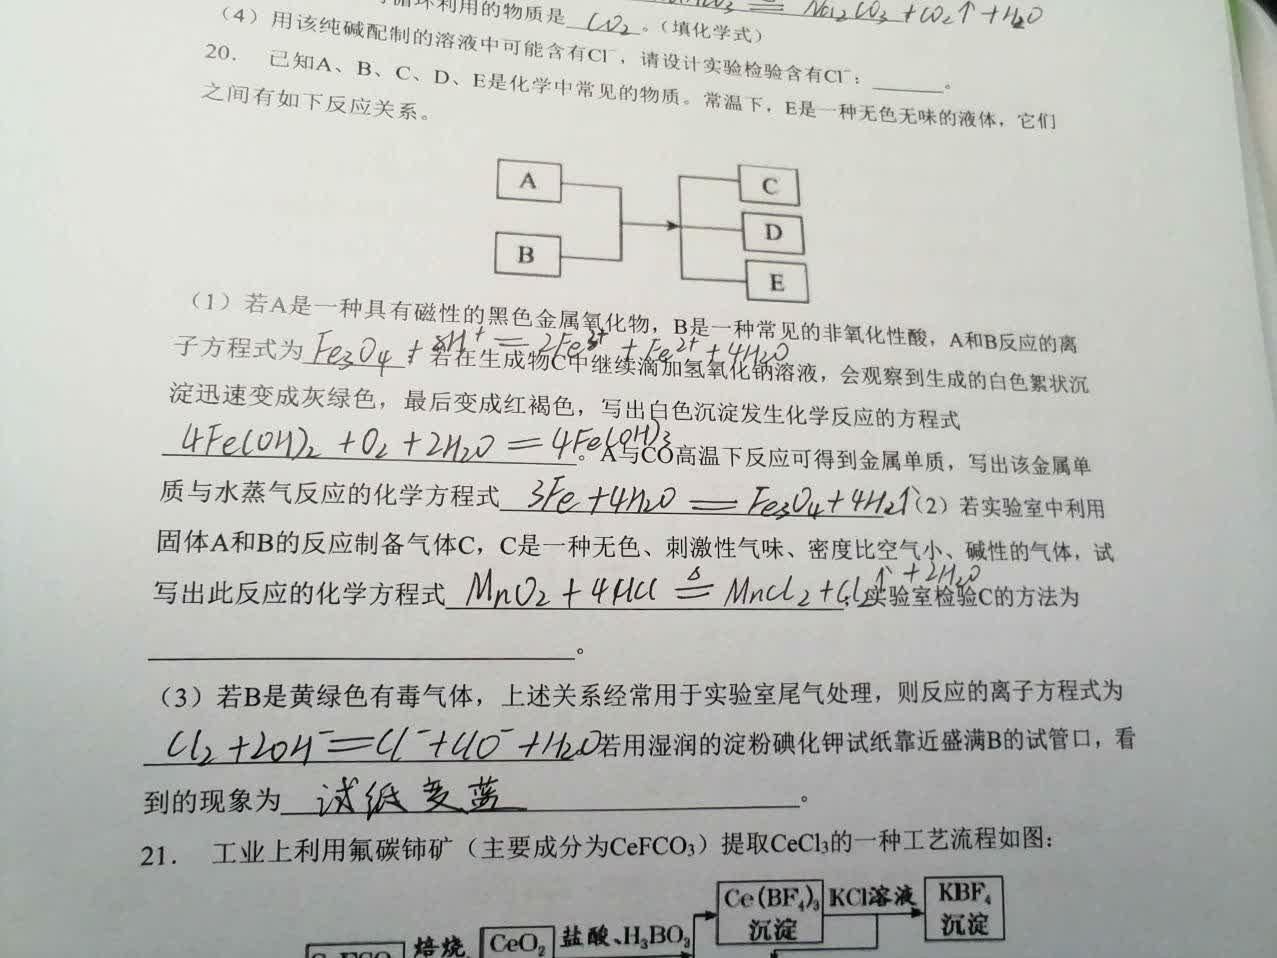 循环利用的物质是 CO₂ 。（填化学式） Na₂CO₃+CO₂↑+H₂O
（4）用该纯碱配制的溶液中可能含有Cl⁻，请设计实验检验含有Cl⁻：______。
20. 已知A、B、C、D、E是化学中常见的物质。常温下，E是一种无色无味的液体，它们
之间有如下反应关系。
A
B
C
D
E
（1）若A是一种具有磁性的黑色金属氧化物，B是一种常见的非氧化性酸，A和B反应的离
子方程式为 Fe₃O₄+8H⁺=2Fe³⁺+Fe²⁺+4H₂O 若在生成物C中继续滴加氢氧化钠溶液，会观察到生成的白色絮状沉
淀迅速变成灰绿色，最后变成红褐色，写出白色沉淀发生化学反应的方程式
4Fe(OH)₂+O₂+2H₂O=4Fe(OH)₃ 。A与CO高温下反应可得到金属单质，写出该金属单
质与水蒸气反应的化学方程式 3Fe+4H₂O=Fe₃O₄+4H₂↑（2）若实验室中利用
固体A和B的反应制备气体C，C是一种无色、刺激性气味、密度比空气小、碱性的气体，试
写出此反应的化学方程式 MnO₂+4HCl≜MnCl₂+Cl₂↑+2H₂O，实验室检验C的方法为
______。
（3）若B是黄绿色有毒气体，上述关系经常用于实验室尾气处理，则反应的离子方程式为
Cl₂+2OH⁻=Cl⁻+ClO⁻+H₂O 若用湿润的淀粉碘化钾试纸靠近盛满B的试管口，看
到的现象为 试纸变蓝 。
21. 工业上利用氟碳铈矿（主要成分为CeFCO₃）提取CeCl₃的一种工艺流程如图：
Ce(BF₄)₃沉淀 KCl溶液 KBF₄沉淀
焙烧 CeO₂ 盐酸、H₃BO₃